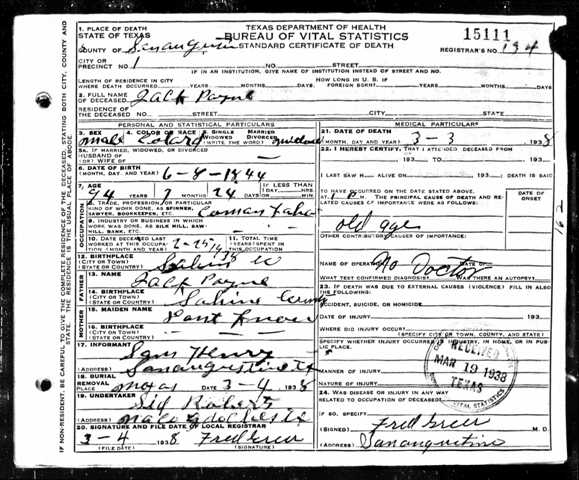 TEXAS DEPARTMENT OF HEALTH
BUREAU OF VITAL STATISTICS
STANDARD CERTIFICATE OF DEATH
15111
REGISTRAR'S NO. 194
1. PLACE OF DEATH
STATE OF TEXAS
COUNTY OF
CITY OR
PRECINCT NO. 1 NO. STREET
IF IN AN INSTITUTION, GIVE NAME OF INSTITUTION INSTEAD OF STREET AND NO.
LENGTH OF RESIDENCE IN CITY
WHERE DEATH OCCURRED YEARS MONTHS DAYS
HOW LONG IN U. S. IF
FOREIGN BORN? YEARS MONTHS DAYS
2. FULL NAME
OF DECEASED Jack Payne
RESIDENCE OF
THE DECEASED NO. STREET CITY STATE
PERSONAL AND STATISTICAL PARTICULARS
3. SEX male
4. COLOR OR RACE
5. SINGLE MARRIED
WIDOWED DIVORCED
(WRITE THE WORD)
5A. IF MARRIED, WIDOWED, OR DIVORCED
HUSBAND OF
(OR) WIFE OF
6. DATE OF BIRTH
(MONTH, DAY, AND YEAR) 6-8-1844
7. AGE
94 YEARS 7 MONTHS 24 DAYS
IF LESS THAN
1 DAY
HOURS MIN.
OCCUPATION
8. TRADE, PROFESSION, OR PARTICULAR
KIND OF WORK DONE, AS SPINNER,
SAWYER, BOOKKEEPER, ETC.
9. INDUSTRY OR BUSINESS IN WHICH
WORK WAS DONE, AS SILK MILL, SAW-
MILL, BANK, ETC.
10. DATE DECEASED LAST
WORKED AT THIS OCCUPA-
TION (MONTH AND YEAR)
11. TOTAL TIME
(YEARS) SPENT IN
THIS OCCUPATION
12. BIRTHPLACE
(CITY OR TOWN)
(STATE OR COUNTRY)
FATHER
13. NAME Jack Payne
14. BIRTHPLACE
(CITY OR TOWN)
(STATE OR COUNTRY) Sabine County
MOTHER
15. MAIDEN NAME Dont Know
16. BIRTHPLACE
(CITY OR TOWN)
(STATE OR COUNTRY)
17. INFORMANT Sam Henry
(ADDRESS)
18. BURIAL
REMOVAL
PLACE DATE 3-4 1938
19. UNDERTAKER Sid Roberts
(ADDRESS)
20. SIGNATURE AND FILE DATE OF LOCAL REGISTRAR
3-4 1938 Fred Greer
(FILE DATE) (SIGNATURE)
MEDICAL PARTICULARS
21. DATE OF DEATH
(MONTH, DAY AND YEAR) 3-3 1938
22. I HEREBY CERTIFY THAT I ATTENDED DECEASED FROM
193 TO 193
I LAST SAW H ALIVE ON 193 ; DEATH IS SAID
TO HAVE OCCURRED ON THE DATE STATED ABOVE.
THE PRINCIPAL CAUSE OF DEATH AND RELATED
CAUSES OF IMPORTANCE WERE AS FOLLOWS:
DATE OF
ONSET
old age
OTHER CONTRIBUTORY CAUSES OF IMPORTANCE:
No Doctor
NAME OF OPERATION
WHAT TEST CONFIRMED DIAGNOSIS? WAS THERE AN AUTOPSY?
23. IF DEATH WAS DUE TO EXTERNAL CAUSES (VIOLENCE) FILL IN ALSO
THE FOLLOWING:
ACCIDENT, SUICIDE, OR HOMICIDE
DATE OF INJURY 193
WHERE DID INJURY OCCUR?
(SPECIFY CITY OR TOWN, COUNTY, AND STATE)
MANNER OF INJURY
NATURE OF INJURY
24. WAS DISEASE OR INJURY IN ANY WAY
RELATED TO OCCUPATION OF DECEASED?
IF SO, SPECIFY
(SIGNED) Fred Greer M. D.
(ADDRESS) Sanaugustine
RECEIVED
MAR 19 1938
TEXAS
VITAL STATISTICS